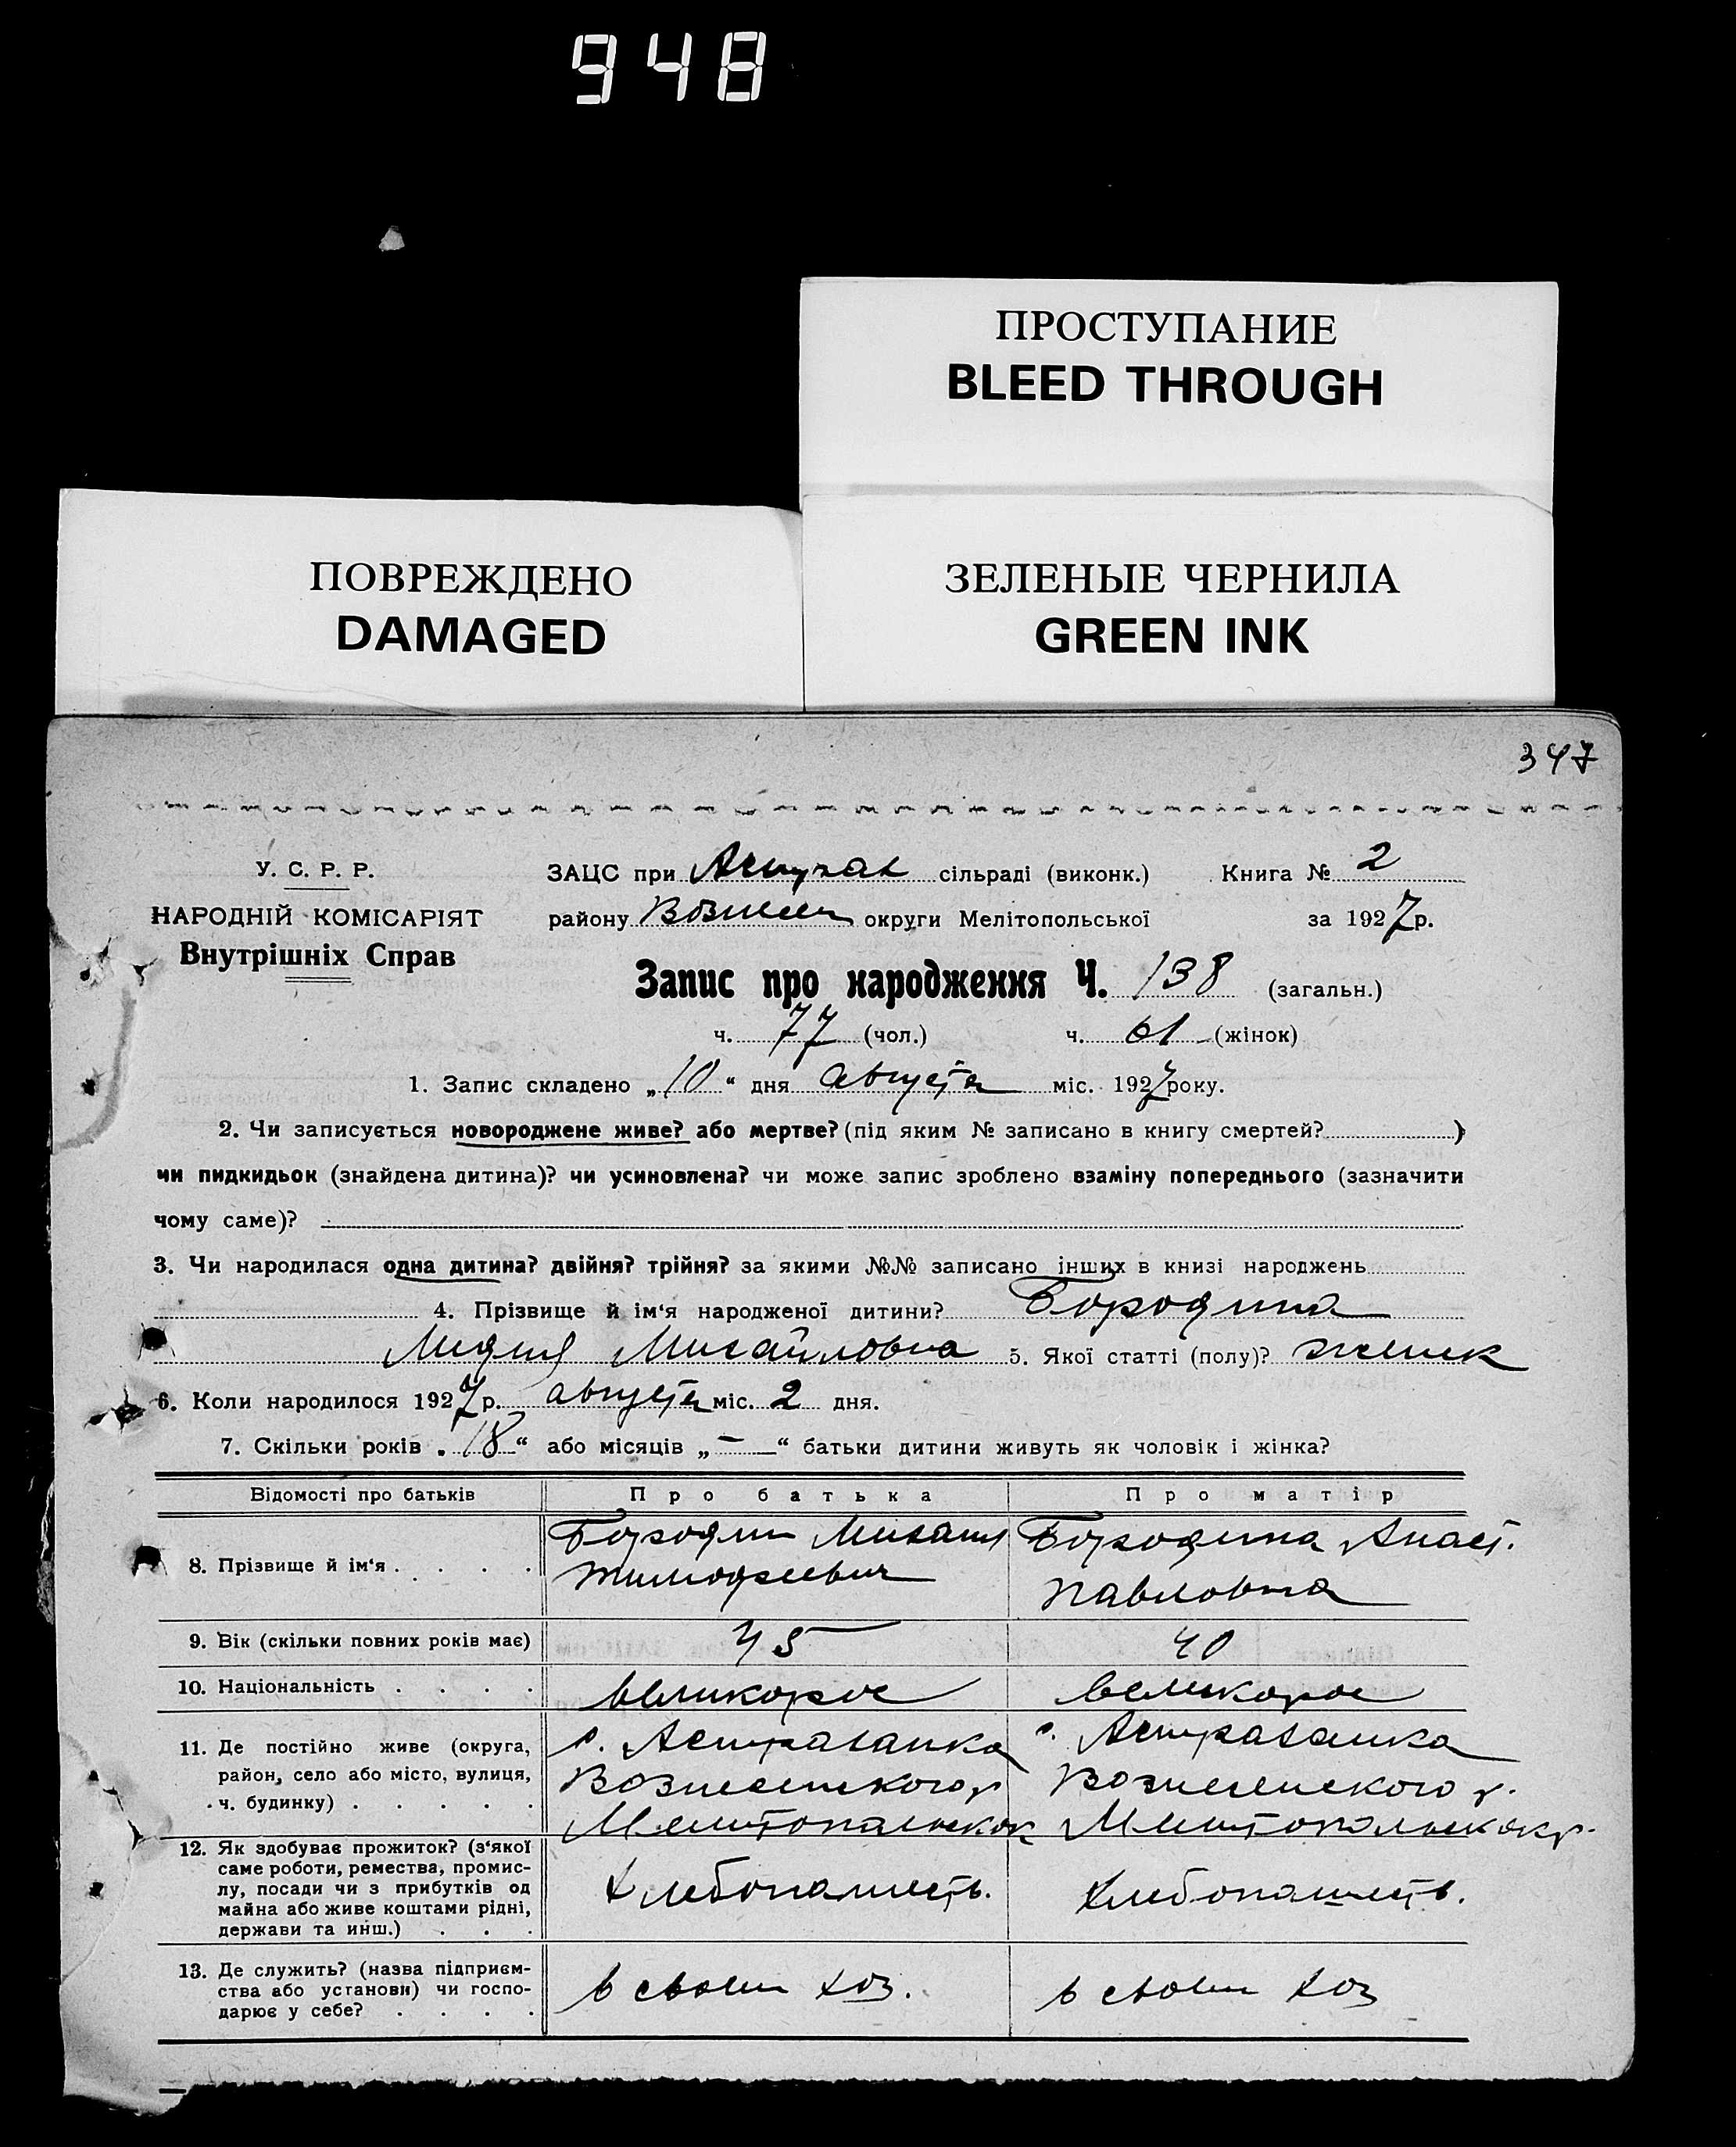 948
ПРОСТУПАНИЕ
BLEED THROUGH
ПОВРЕЖДЕНО
DAMAGED
ЗЕЛЕНЫЕ ЧЕРНИЛА
GREEN INK
347
У. С. Р. Р.
НАРОДНІЙ КОМІСАРІЯТ
Внутрішніх Справ
ЗАЦС при Астрах сільраді (виконк.) Книга № 2
району Вознесен округи Мелітопольської за 1927 р.
Запис про народження Ч. 138 (загальн.)
ч. 77 (чол.) ч. 61 (жінок)
1. Запис складено „10“ дня августа міс. 1927 року.
2. Чи записується новороджене живе? або мертве? (під яким № записано в книгу смертей? )
чи пидкидьок (знайдена дитина)? чи усиновлена? чи може запис зроблено взаміну попереднього (зазначити
чому саме)?
3. Чи народилася одна дитина? двійня? трійня? за якими №№ записано інших в книзі народжень
4. Прізвище й ім‘я народженої дитини? Бородина
Лидия Михайловна 5. Якої статті (полу)? женск
6. Коли народилося 1927 р. августа міс. 2 дня.
7. Скільки років „18“ або місяців „–“ батьки дитини живуть як чоловік і жінка?
Відомості про батьків Про батька Про матір
8. Прізвище й ім‘я . . . . . Бородин Михаил Тимофеевич Бородина Анаст. Павловна
9. Вік (скільки повних років має) 45 40
10. Національність . . . . великорос великорос
11. Де постійно живе (округа,
район, село або місто, вулиця,
ч. будинку) . . . . .
с. Астраханка
Вознесенского р
Мелитопольск ок
с. Астраханка
Вознесенского р.
Мелитопольск окр.
12. Як здобуває прожиток? (з‘якої
саме роботи, ремества, промис-
лу, посади чи з прибутків од
майна або живе коштами рідні,
держави та инш.) . . .
Хлебопашеств. Хлебопашеств.
13. Де служить? (назва підприєм-
ства або установи) чи госпо-
дарює у себе? . . . .
в своем хоз. в своем хоз